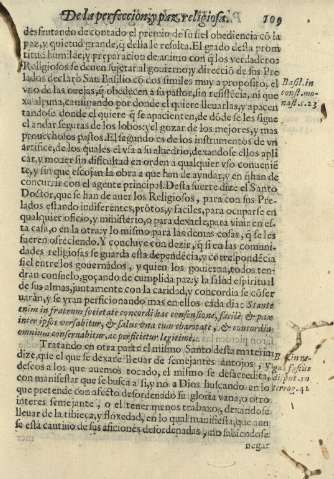 De la perfeccion, y paz religiosa. 109
desfrutando de contado el premio de su fiel obediencia cō la
paz, y quietud grande, q̄ della le resulta. El grado desta prom
titud humilde, y preparacion de animo con q̄ los verdaderos
Religiosos se deuen sujetar al gouierno y direcciō de sus Pre
lados declarò San Basilio cō dos similes muy a proposito, el
vno de las ovejas, q̄ obedecen a su pastor, sin resistēcia, ni que
xa alguna, caminando por donde el quiere lleuarlas, y apacen
tandose donde el quiere q̄ se apacienten, de dōde se les sigue
el andar seguras de los lobos: y el gozar de los mejores, y mas
prouechosos pastos. El segundo es de los instrumentos de vn
artifice, de los quales el vsa a su aluedrio, dexandose ellos apli
car, y mouer sin dificultad en orden a qualquier vso conuenie
te, y sin que escojan la obra a que han de ayudar, y en q̄ han de
concurrir con el agente principal. Desta suerte dize el Santo
Doctor, que se han de auer los Religiosos, para con sus Pre
lados estando indiferentes, prōtos, y faciles, para ocuparse en
qualquier oficio, y ministerio, o para dexarle, para viuir en es
ta casa, o en la otra: y lo mismo para las demas cosas, q̄ se les
fueren ofreciendo. Y concluye con dezir, q̄ si en las comuni-
dades religiosas se guarda esta dependēcia, y correspondēcia
fiel entre los gouernados, y quien los gouierna, todos ten-
dran consuelo, gozando de cumplida paz: y la salud espiritual
de sus almas, juntamente con la caridad, y concordia se cōser
uaràn, y se yran perficionando mas en ellos cada dia: Stante
enim in fratrum societate concordi hac consensione, facilè, & pax
inter ipsos versabitur, & salus vna cum charitate, & concordia
omnino conseruabitur, ac perficietur legitimè.
Tratando en otra parte el mismo Santo desta materia
dize, que el que se dexare lleuar de semejantes antojos, y
deseos a los que auemos tocado, el mismo se desacredita,
con manifestar que se busca a si, y no a Dios buscando en lo
que pretende con afecto desordenado su gloria vana, o otro
interes semejante, o el tener menos trabajo, dexandose
lleuar de la tibieza, y floxedad, en lo qual manifiesta, que aun
se està cautiuo de sus aficiones desordenadas, no sabiendose
negar
Basil. in
const. mo-
nast. c. 23